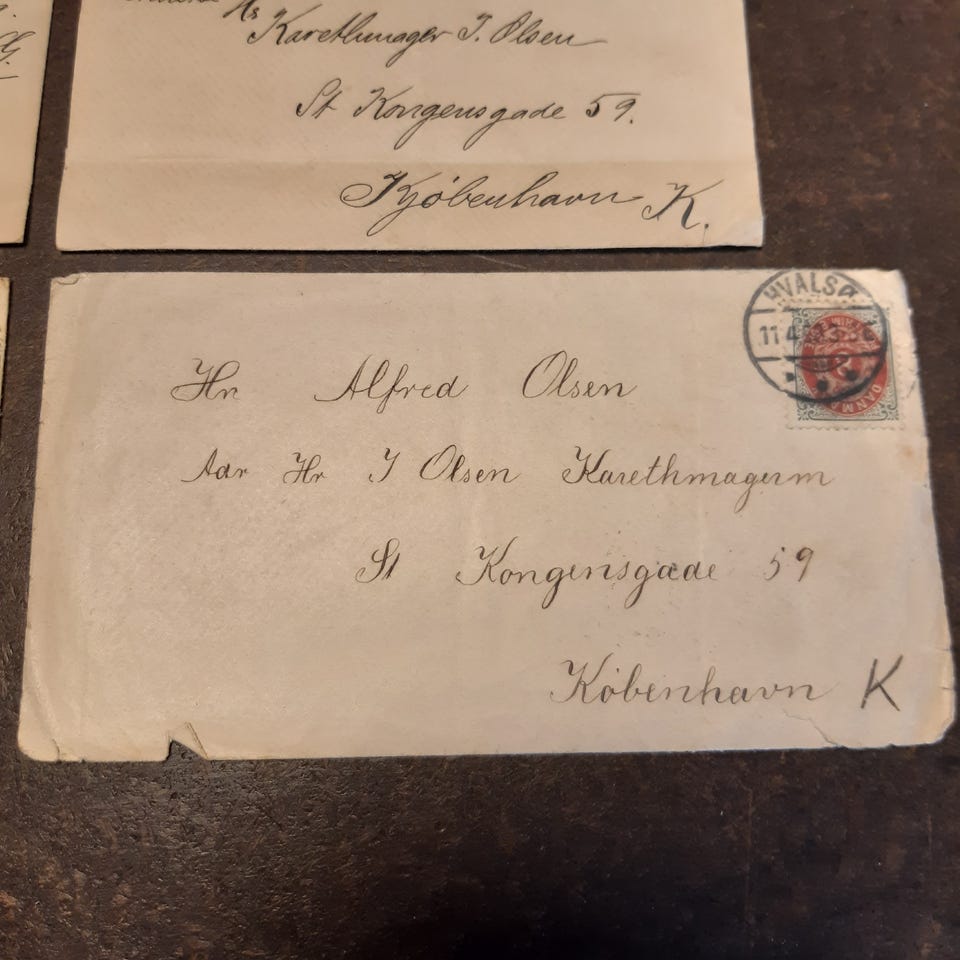 G.
Hr
Karethmager J. Olsen
St Kongensgade 59.
Kjöbenhavn K.
HVALSØ
11 4
DANMARK
Hr Alfred Olsen
Adr Hr J Olsen Karethmagerm
St Kongensgade 59
København K